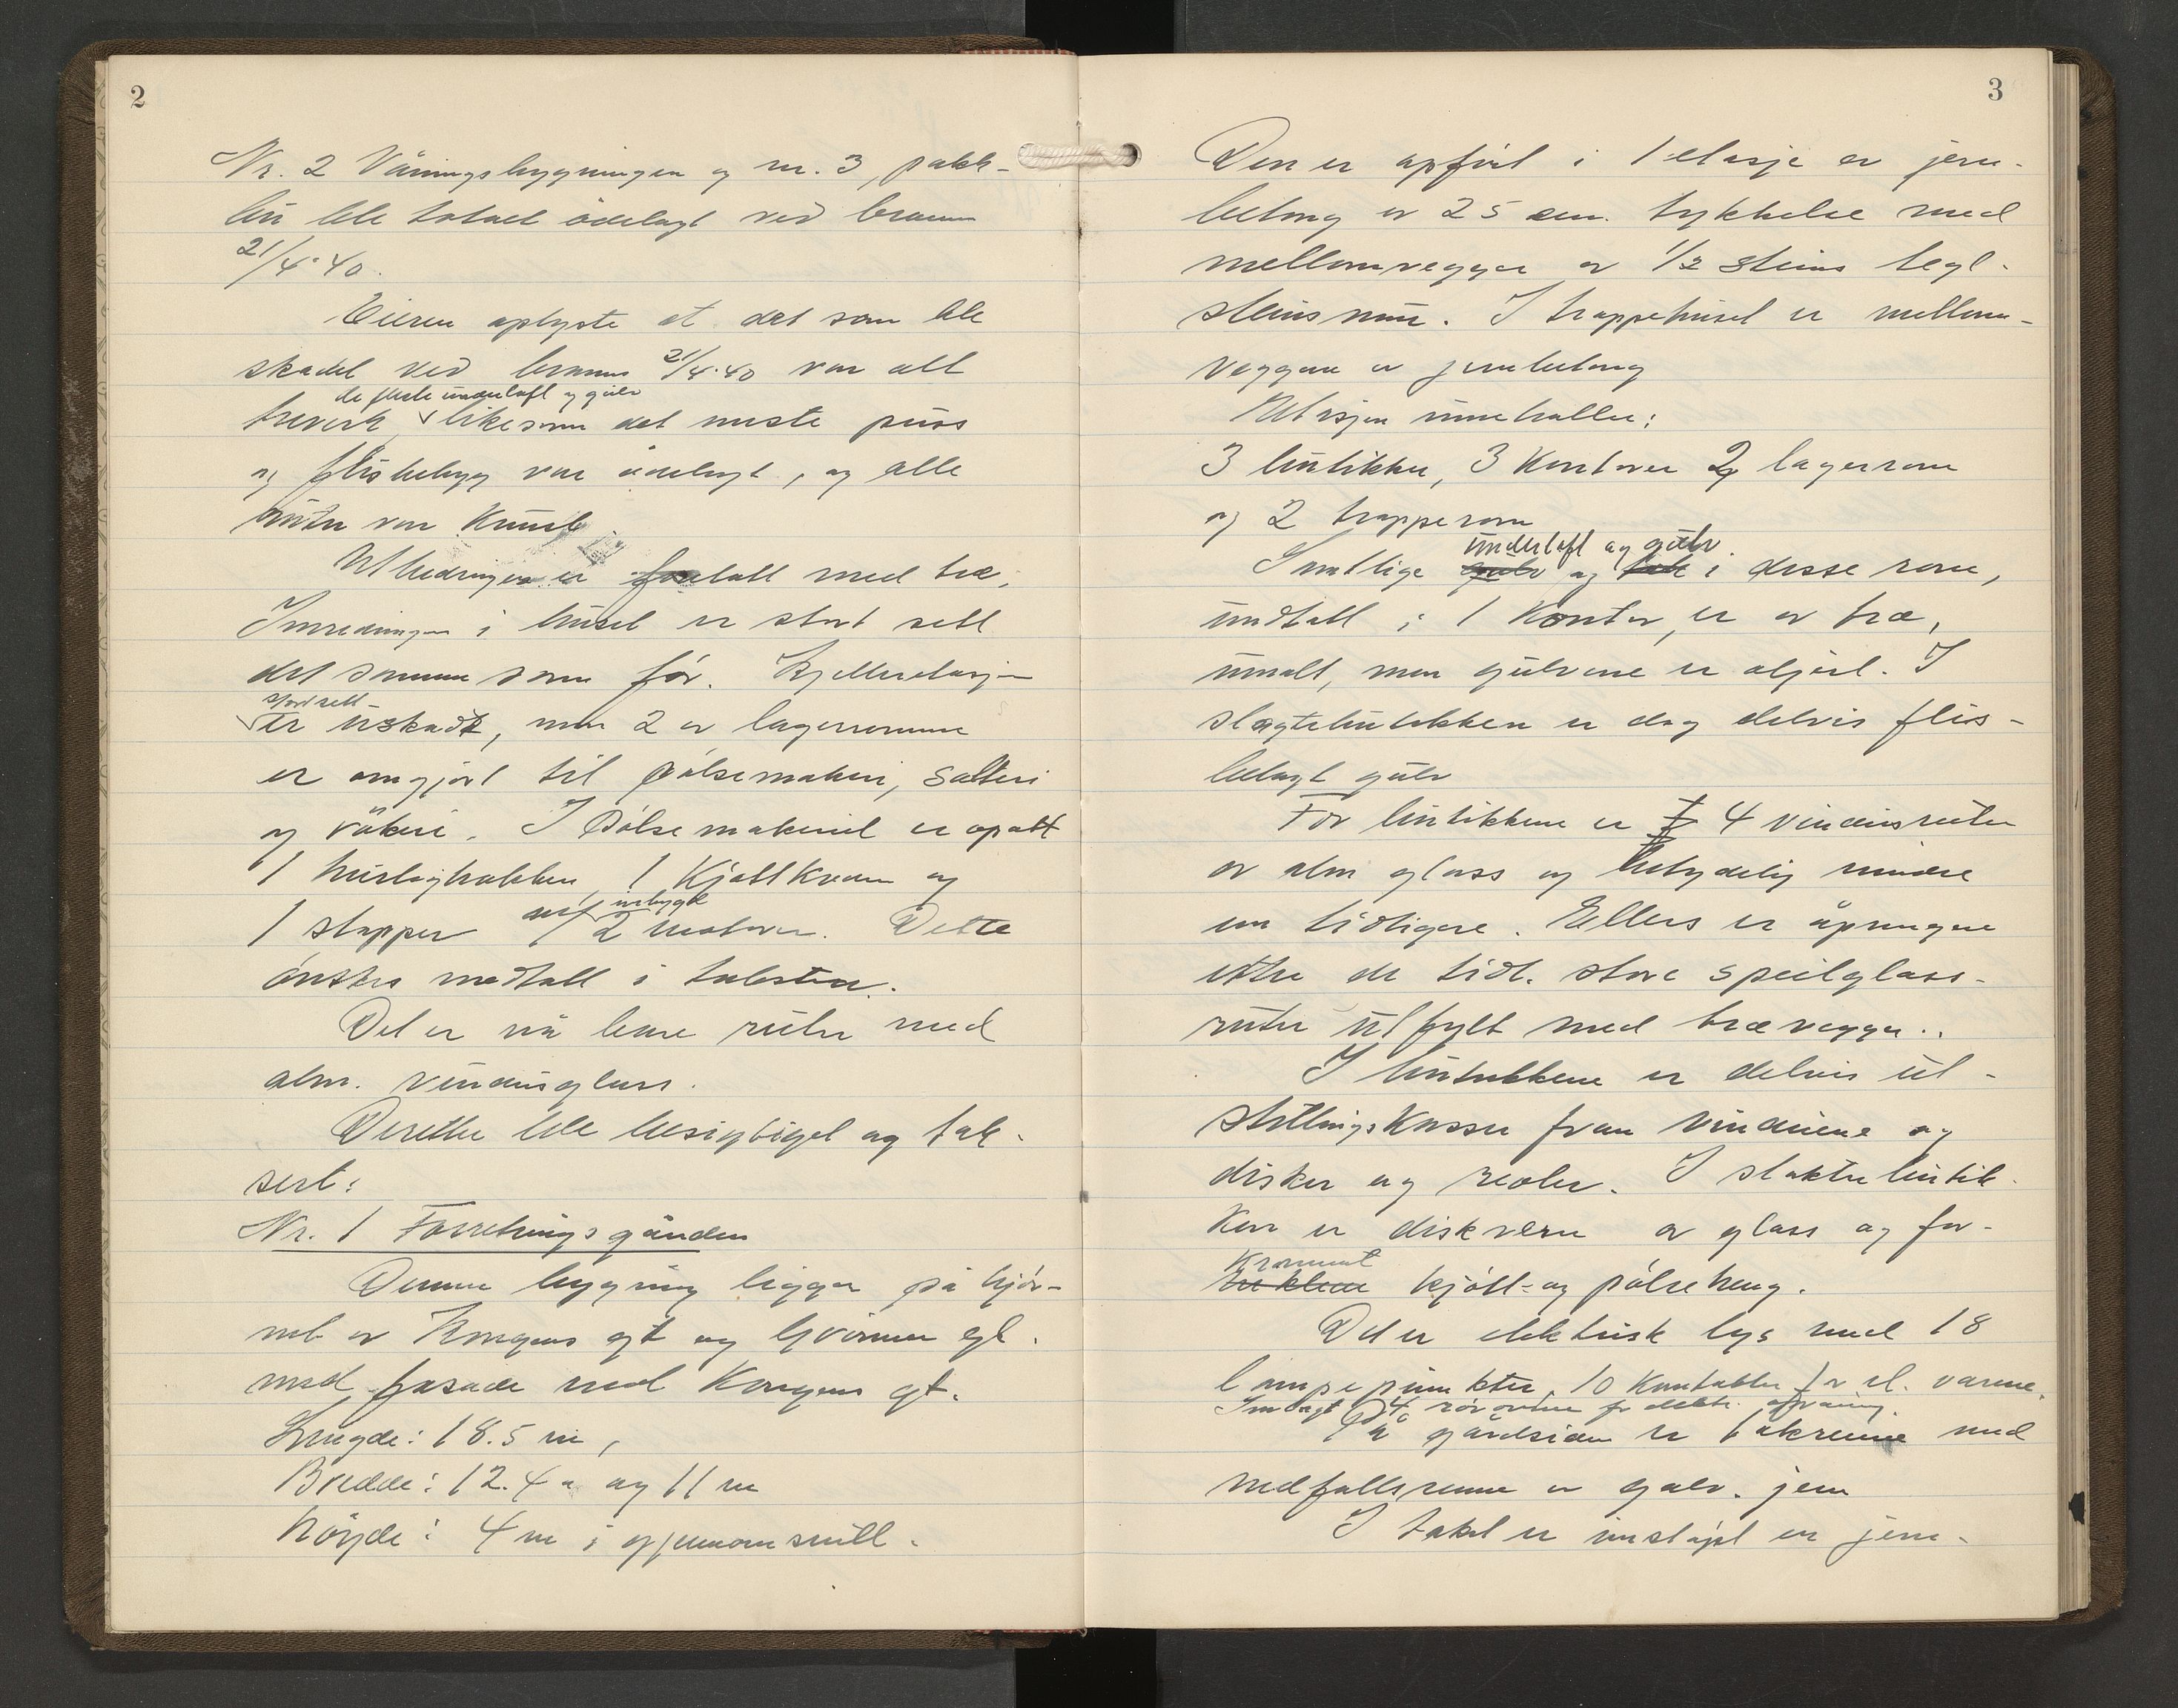 2
Nr. 2 Våningsbygningen og nr. 3, pakk-
bu ble totalt ödelagt ved brann
21/4-40.
Eieren oplyste at det som ble
skadet ved brann 21/4-40 var alt
de fleste underloft og gulv
treverk, likesom det meste puss
og flisbelegg var ödelagt, og alle
ruter var knust.
Utbedringen er foretatt med træ,
Innredningen i huset er stort sett
det samme som för. Kjelleretasjen
stort sett
er uskadt, men 2 av lagerrommene
er omgjort til pölsemakeri, salteri
og rökeri. I Pölsemakeriet er opsatt
1 hurtighakker, 1 Kjöttkvern og
innbygt
1 stopper m/ 2 motorer. Dette
önskes medtatt i taksten.
Det er nå bare ruter med
alm. vindusglass.
Deretter ble besigtiget og tak-
sert:
Nr. 1 Forretningsgården
Denne bygning ligger på hjör-
net av Kongens gt og gt.
med fasade mot Kongens gt.
Lengde: 18.5 m,
Bredde: 12.4 og 11 m
Höyde: 4 m i gjennomsnitt.
3
Den er opfört i 1 etasje av jern-
betong av 25 cm. tykkelse med
mellomvegger av 1/2 steins tegl-
steinsmur. I trappehuset er mellom-
veggene av jernbetong
Etasjen inneholder:
3 butikker, 3 Kontorer 2 lagerrom
og 2 trapperom
underloft og gulv
Samtlige gulv og tak i disse rom,
undtatt i 1 Kontor, er av træ,
umalt, men gulvene er oljet. I
slagtebutikken er dog delvis flis-
belagt gulv
For butikkene er 4 vindusruter
av alm glass og betydelig mindre
enn tidligere. Ellers er åpningene
etter de tidl. store speilglass-
ruter utfylt med trævegger.
I butikkene er delvis ut-
stillingskasser foran vinduene og
disker og reoler. I slakterbutik-
ken er diskvern av glass og for-
krommet
kjött- og pölseheng.
Det er elektrisk lys med 18
lampepunkter, 10 kontakter for el. varme.
Innlagt 4 rörovner for elektr. opvarming.
På gårdsiden er takrenne med
nedfallsrenne av galv. jern
I taket er instöpt en jern-